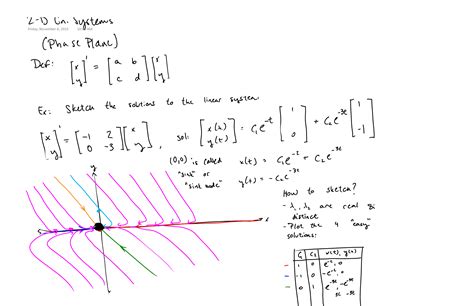 2-D Lin. Systems
(Phase Plane)
Def: [x y]' = [a b c d] [x y]
Ex: Sketch the solutions to the linear system
[x y]' = [-1 2 0 -3] [x y], sol: [x(t) y(t)] = C₁e^-t [1 0] + C₂e^-3t [1 -1]
(0,0) is called "sink" or "sink node"
x(t) = C₁e^-t + C₂e^-3t
y(t) = -C₂e^-3t
How to sketch?
- λ₁, λ₂ are real &
distinct
- Plot the 4 "easy"
solutions:
C₁ C₂ x(t), y(t)
1 0 e^-t, 0
-1 0 -e^-t, 0
0 1 e^-3t, -e^-3t
y
x